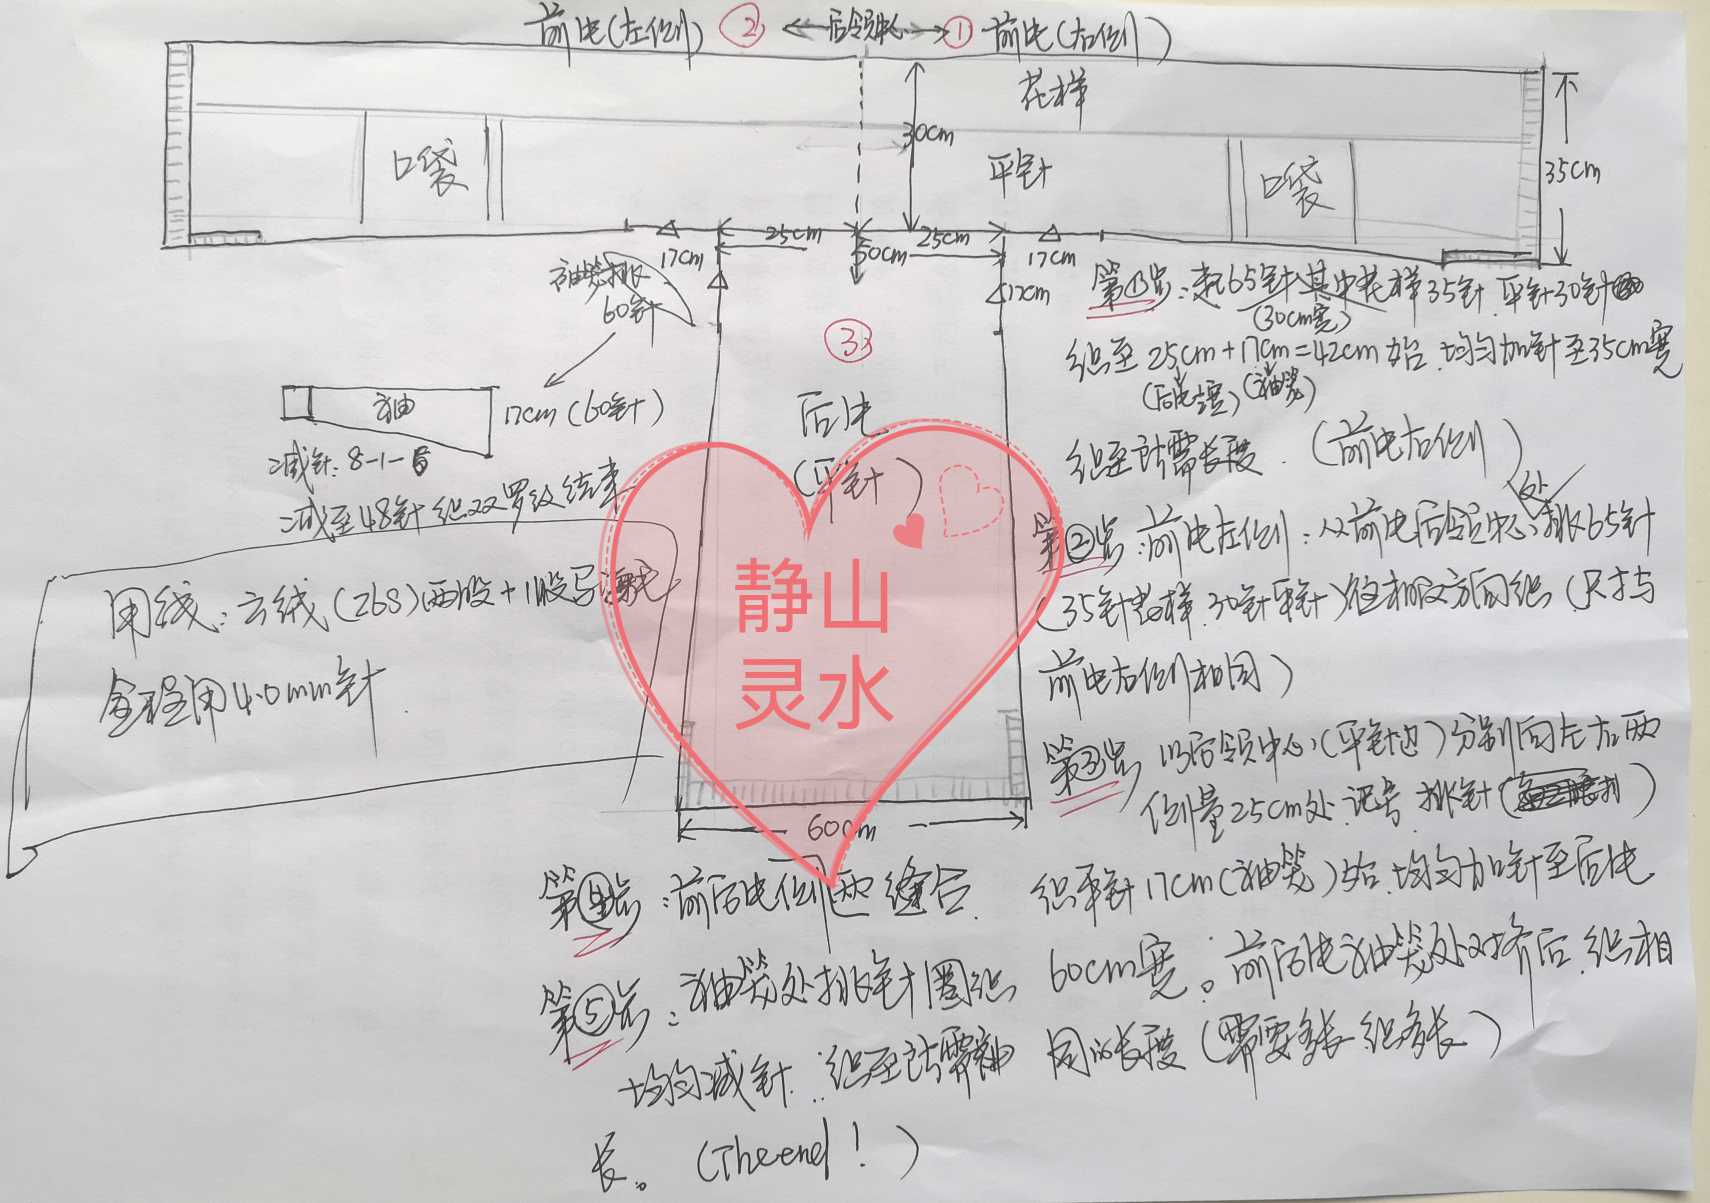 前片(左侧) ② ←后领中心→ ① 前片(右侧)
花样
30cm
口袋
平针
口袋
35cm
25cm
25cm
17cm
50cm
17cm
袖笼挑
60针
17cm
第①步:起65针,其中花样35针.平针30针
(30cm宽)
织至25cm+17cm=42cm始.均匀加针至35cm宽
(后片宽)(袖笼)
织至所需长度.(前片右侧)
③
后片
(平针)
袖
17cm(60针)
减针:8-1-6
减至48针织双罗纹结束
用线:云绒(26S)两股+1股马海毛
全程用4.0mm针.
静山
灵水
第②步:前片左侧:从前片后领中心处挑65针
(35针花样.30针平针)往相反方向织(尺寸与
前片右侧相同)
第③步 以后领中心(平针边)分别向左右两
侧量25cm处.记号.挑针
织平针17cm(袖笼)始.均匀加针至后片
60cm宽。前后片袖笼处对齐后.织相
同的长度(需要多长.织多长)
60cm
第④步:前后片侧边缝合.
第⑤步:袖笼处挑针圈织
均匀减针.织至所需袖
长。(The end!)